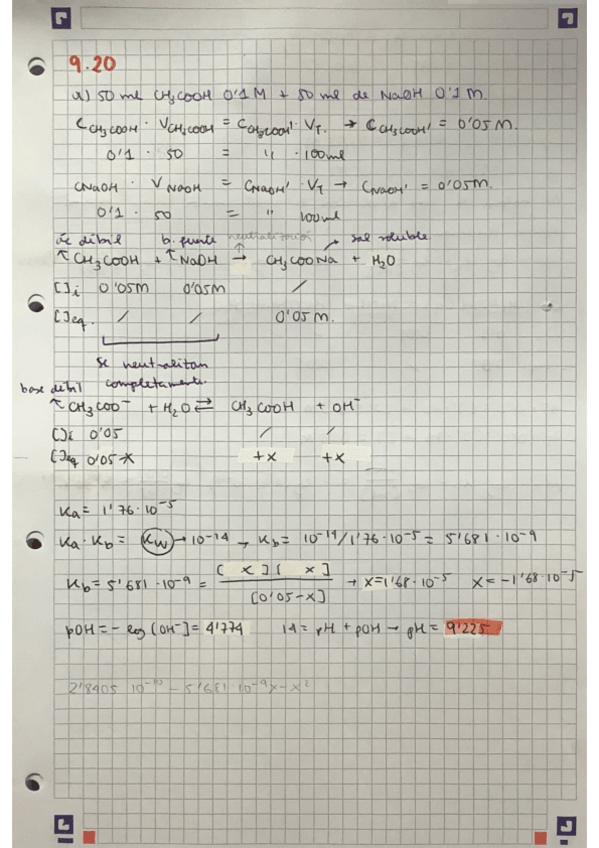 9.20
a) 50 ml CH3COOH 0'1 M + 50 ml de NaOH 0'1 M.
CCH3COOH · VCH3COOH = CCH3COOH' · VT. → CCH3COOH' = 0'05 M.
0'1 · 50 = " · 100 ml
CNaOH · VNaOH = CNaOH' · VT → CNaOH' = 0'05 M.
0'1 · 50 = " 100 ml
ác débil b. fuerte neutralización sal soluble
CH3COOH + NaOH → CH3COONa + H2O
[]i 0'05M 0'05M /
[]eq. / / 0'05 M.
Se neutralitan
completamente.
base débil
CH3COO⁻ + H2O ⇄ CH3COOH + OH⁻
[]i 0'05 / /
[]eq 0'05-x +x +x
Ka = 1'76·10⁻⁵
Ka · Kb = Kw → 10⁻¹⁴ → Kb = 10⁻¹⁴/1'76·10⁻⁵ = 5'681·10⁻⁹
Kb = 5'681·10⁻⁹ = [x][x] / [0'05-x] → x = 1'68·10⁻⁵ x = -1'68·10⁻⁵
pOH = - log [OH⁻] = 4'774 14 = pH + pOH → pH = 9'225
2'8405 10⁻¹⁰ - 5'681·10⁻⁹x - x²